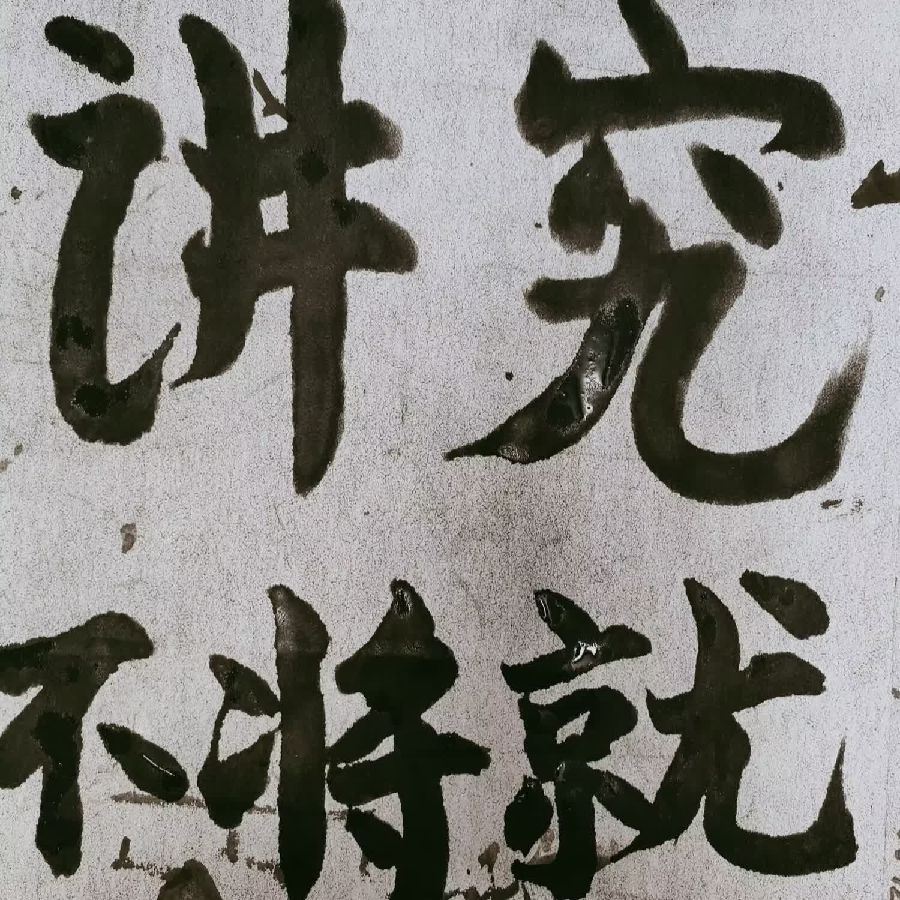 讲究
不将就